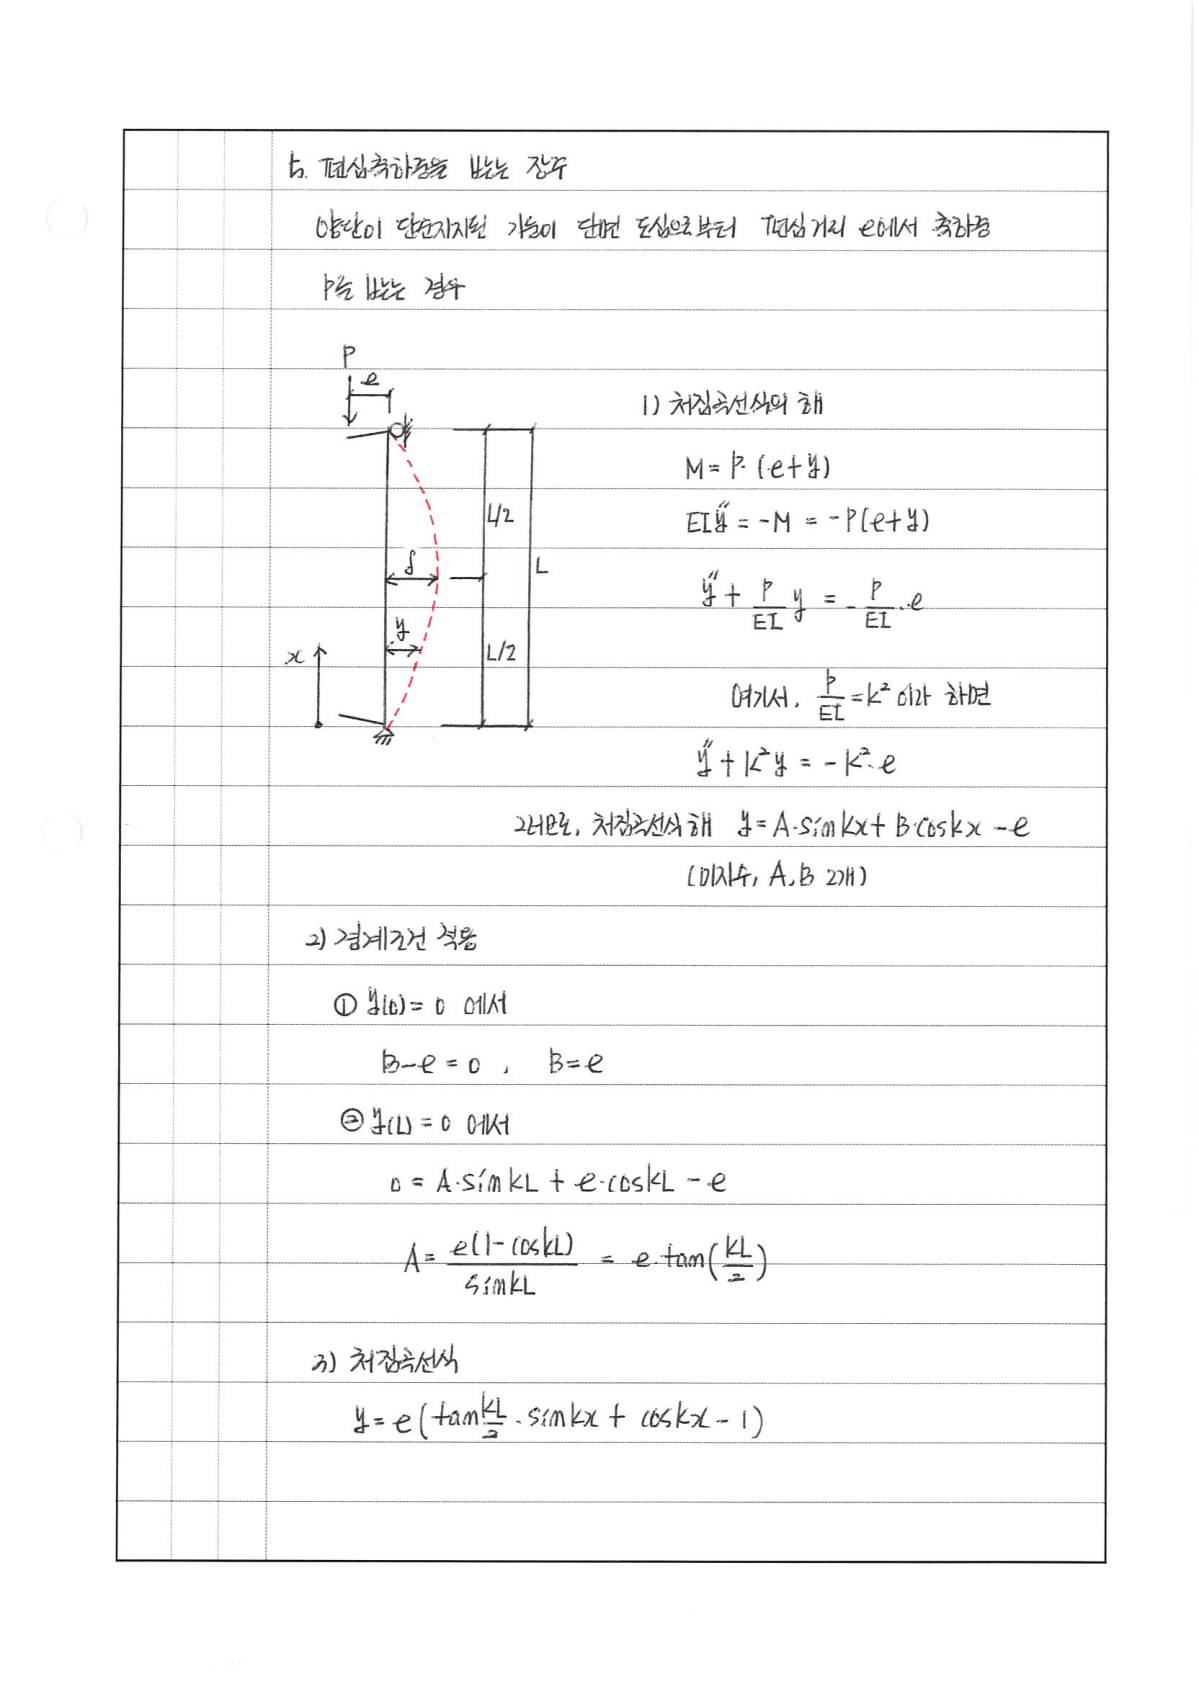 5. 편심축하중을 받는 장주
양단이 단순지지된 기둥이 단면 도심으로부터 편심거리 e에서 축하중
P를 받는 경우
P
e
L/2
δ
L
y
L/2
x
1) 처짐곡선식의 해
M = P·(e+y)
EIy″ = -M = -P(e+y)
y″ + P/EI y = - P/EI · e
여기서, P/EI = k² 이라 하면
y″ + k²y = -k²·e
그러므로, 처짐곡선식 해 y = A·sinkx + B·coskx - e
(미지수, A, B 2개)
2) 경계조건 적용
① y(0) = 0 에서
B-e = 0 , B = e
② y(L) = 0 에서
0 = A·sinkL + e·coskL - e
A = e(1-coskL)/sinkL = e·tan(kL/2)
3) 처짐곡선식
y = e(tan kL/2 · sinkx + coskx - 1)